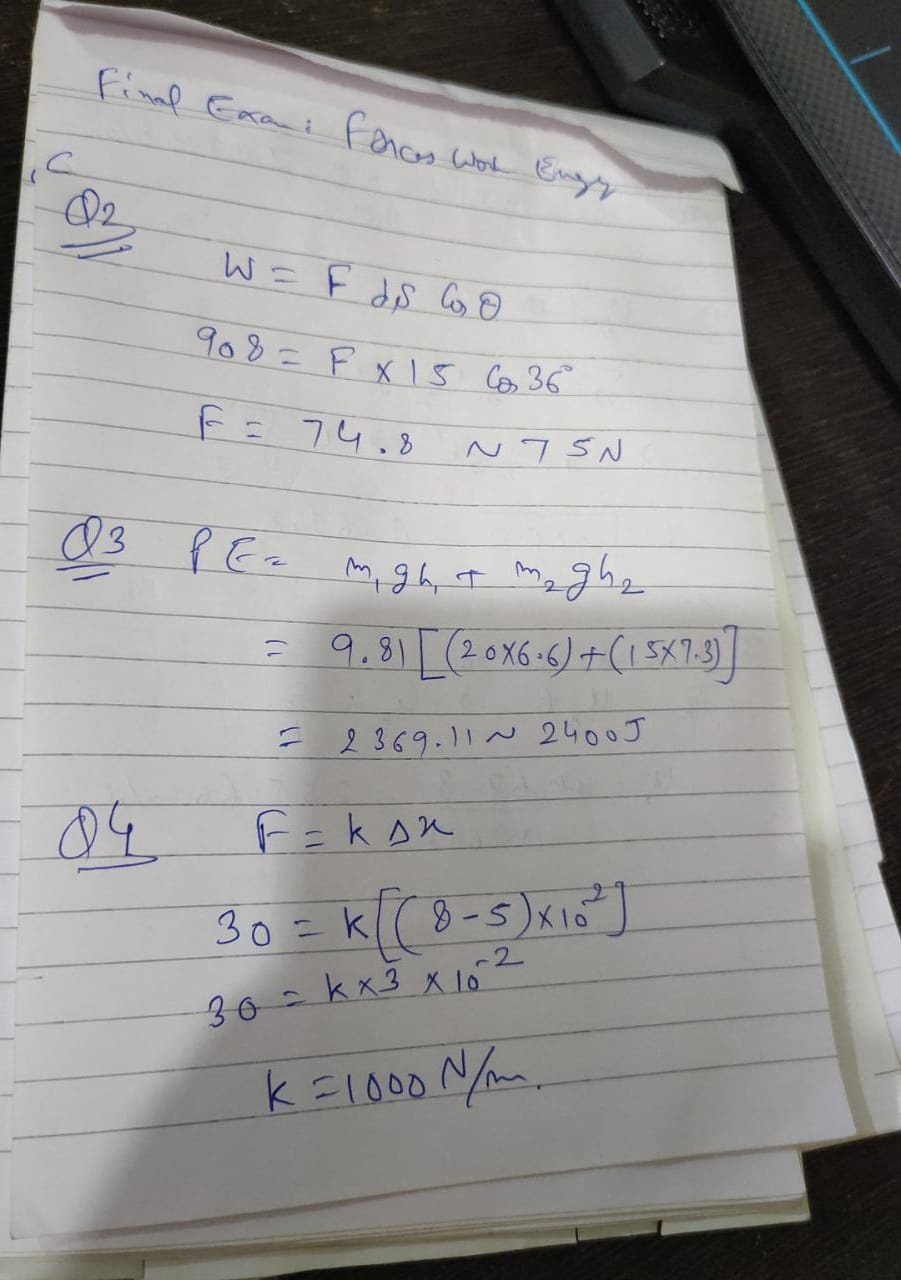 Final Exam: Forces Work Energy
C
Q2
W = F ds Cos θ
908 = F x 15 Cos 36°
F = 74.8 ~ 75N
Q3 PE = m₁gh₁ + m₂gh₂
= 9.81[(20x6.6)+(15x7.3)]
= 2369.11 ~ 2400J
Q4 F = k Δx
30 = k[(8-5)x10⁻²]
30 = k x 3 x 10⁻²
k = 1000 N/m.